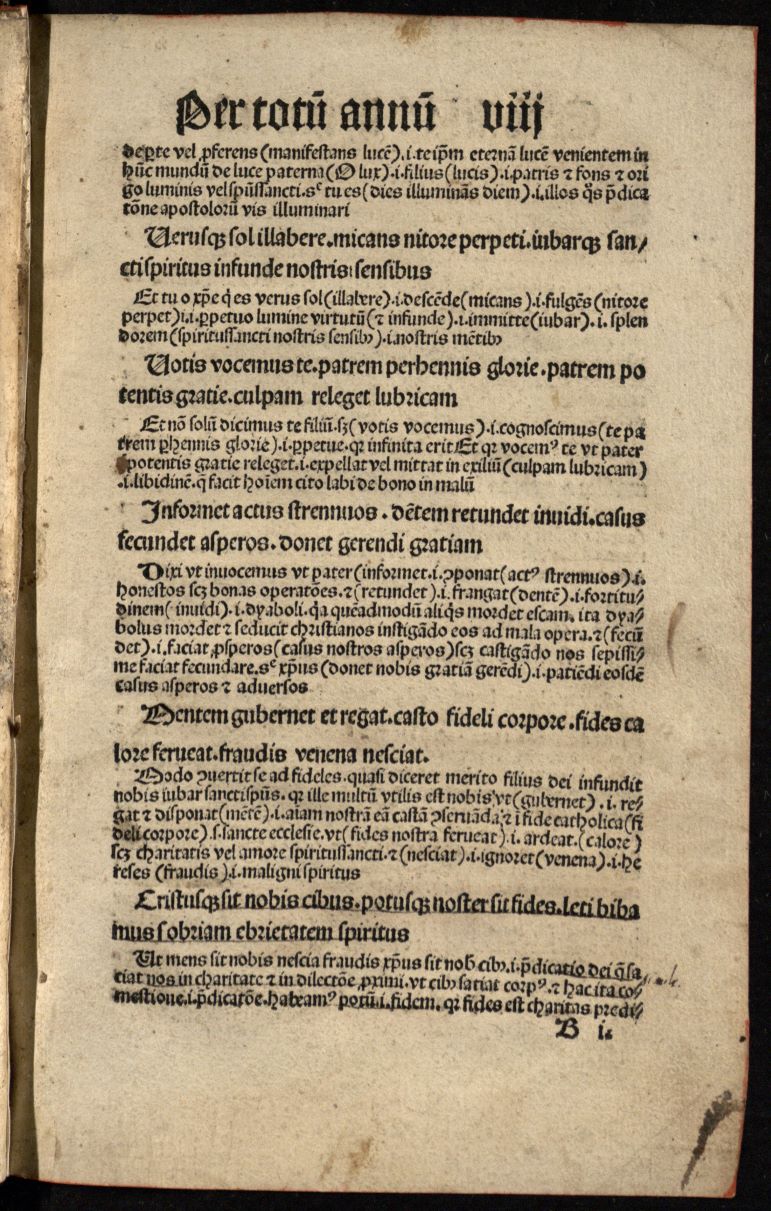 Per totū annū viij
de ꝑte vel ꝓferens (manifestans lucē).i.te ip̄m eternā lucē venientem in
hūc mundū de luce paterna (O lux).i.filius (lucis).i.patris ⁊ fons ⁊ ori
go luminis vel spūssancti.sᶜ tu es (dies illuminās diem).i.illos q̄s p̄dica
tōne apostolorū vis illuminari
Uerusqꝫ sol illabere.micans nitore perpeti.iubarqꝫ san/
cti spiritus infunde nostris sensibus
Et tu o xp̄e q̇ es verus sol (illabere).i.descēde (micans).i.fulgēs (nitore
perpet)i.i.ꝑpetuo lumine virtutū (⁊ infunde).i.immitte (iubar).i.splen
dorem (spiritussancti nostris sensibꝰ).i.nostris mētibꝰ
Uotis vocemus te.patrem perhennis glorie.patrem po
tentis gratie.culpam releget lubricam
Et nō solū dicimus te filiū.sꝫ (votis vocemus).i.cognoscimus (te pa
trem ꝑhennis glorie).i.ꝑpetue.qꝛ infinita erit Et qꝛ vocemꝰ te vt pater
potentis gratie releget.i.expellat vel mittat in exiliū (culpam lubricam)
.i.libidinē.q̄ facit hoīem cito labi de bono in malū
Informet actus strennuos.dētem retundet inuidi.casus
fecundet asperos.donet gerendi gratiam
Dixi vt inuocemus vt pater (informet.i.ꝯponat (actꝰ strennuos).i.
honestos scꝫ bonas operatōes.⁊ (retundet).i.frangat (dentē).i.fortitu/
dinem (inuidi).i.dyaboli.q̇a quēadmodū aliq̇s mordet escam, ita dya/
bolus mordet ⁊ seducit christianos instigādo eos ad mala opera.⁊ (fecū
det).i.faciat ꝓsperos (casus nostros asperos) scꝫ castigādo nos sepissi/
me faciat fecundare.sᶜ xp̄us (donet nobis gratiā gerēdi).i.patiēdi eosdē
casus asperos ⁊ aduersos
Mentem gubernet et regat.casto fideli corpore.fides ca
lore ferueat.fraudis venena nesciat.
Modo ꝯuertit se ad fideles.quasi diceret merito filius dei infundit
nobis iubar sancti spūs.qꝛ ille multū vtilis est nobis vt (gubernet).i.re/
gat ⁊ disponat (mētē).i.aīam nostrā eā castā ꝯseruāda ⁊ ī fide catholica (fi
deli corpore).s.sancte ecclesie.vt (fides nostra ferueat).i.ardeat.(calore)
scꝫ charitatis vel amore spiritussancti.⁊ (nesciat).i.ignoret (venena).i.he
reses (fraudis).i.maligni spiritus
Cristusqꝫ sit nobis cibus.potusqꝫ noster sit fides.leti biba
mus sobriam ebrietatem spiritus
Ut mens sit nobis nescia fraudis xp̄us sit nob̄ cibꝰ.i.p̄dicatio dei q̄ sa
ciat nos in charitate ⁊ in dilectōe ꝓximi.vt cibꝰ satiat corpꝰ.⁊ hac ita co/
mestione.i.p̄dicatōe.habeamꝰ potū.i.fidem.qꝛ fides est charitas predi/
B i.